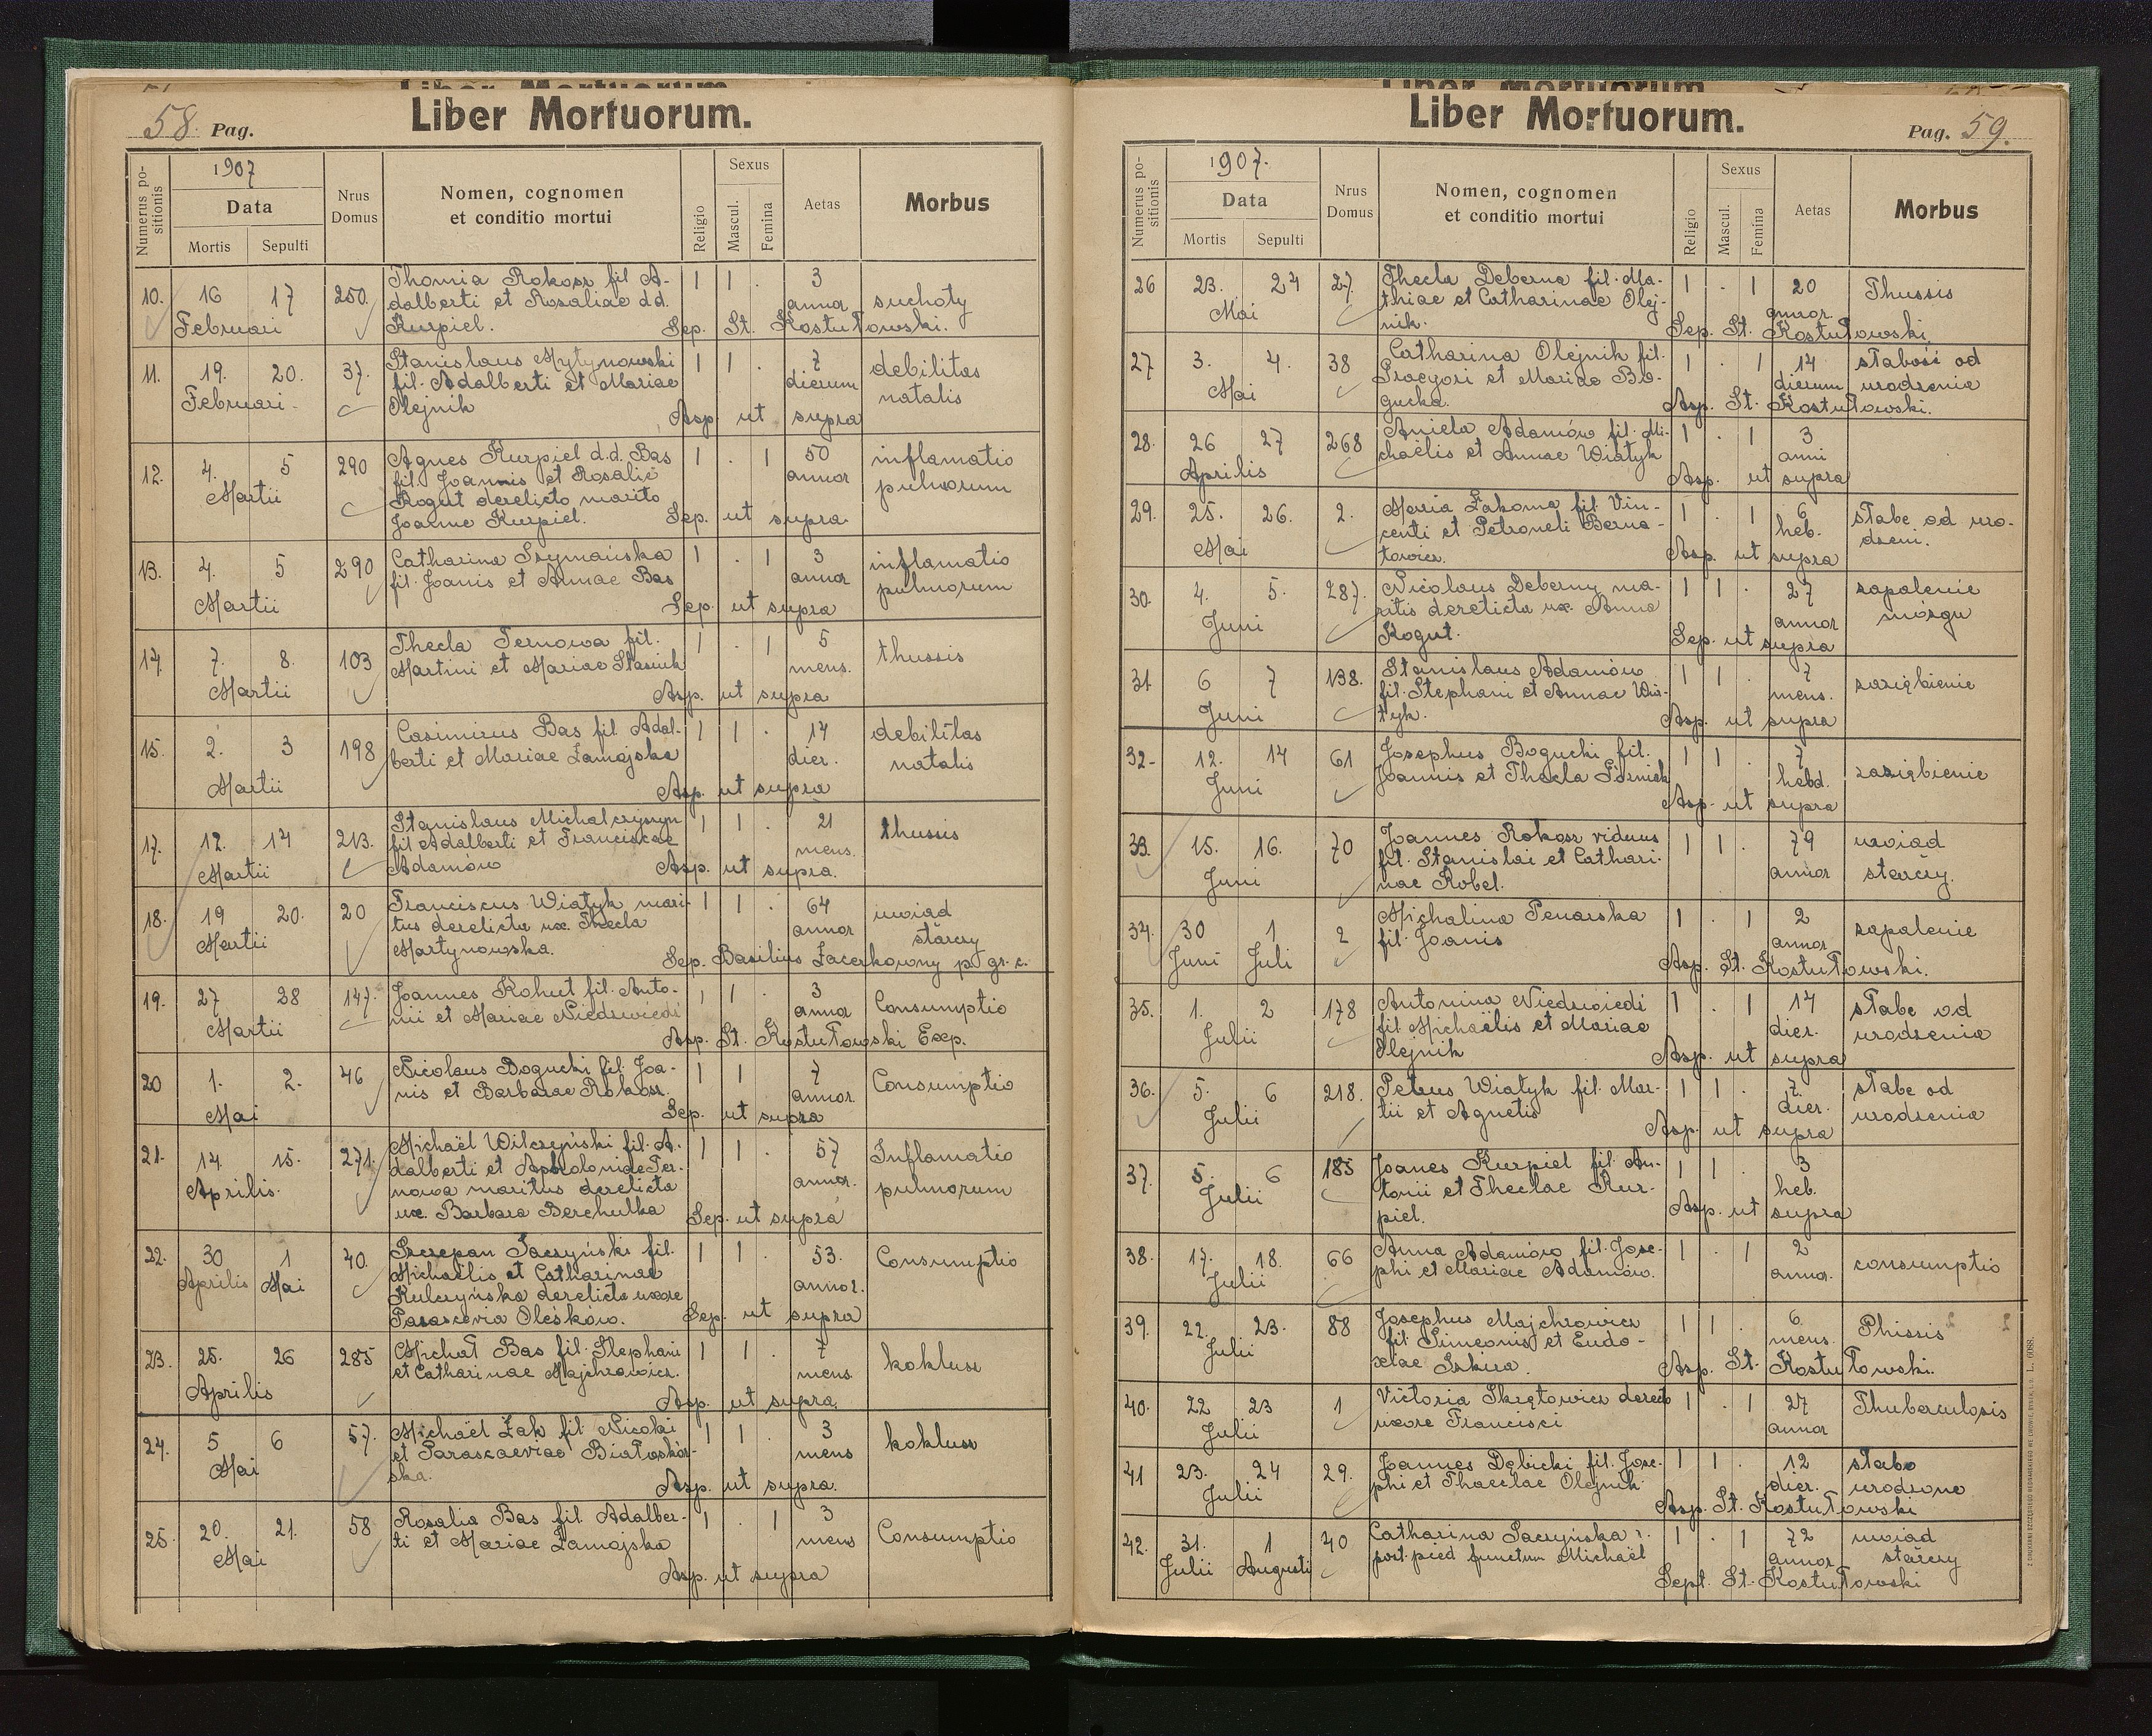 Liber Mortuorum.
58. Pag.
Numerus positionis
1907
Data
Mortis Sepulti
Nrus Domus
Nomen, cognomen
et conditio mortui
Religio
Sexus
Mascul. Femina
Aetas
Morbus
10. 16 17 Februari 250. Thomia Rokosz fil A-
dalberti et Rosaliae d.d.
Kurpiel. 1 1 . 3 annor suchoty
Sep. St. Kostułowski.
11. 19. 20. Februari 37. Stanislaus Mytynowski
fil. Adalberti et Mariae
Olejnik 1 1 . 7 dierum debilitas
natalis
Asp. ut supra
12. 4. 5 Martii 290 Agnes Kurpiel d.d. Bas
fil. Joannis et Rosalie
Kogut derelicto marito
Joanne Kurpiel. 1 . 1 50 annor inflamatio
pulmorum
Sep. ut supra
13. 4. 5 Martii 290 Catharina Szymańska
fil. Joanis et Annae Bas 1 . 1 3 annor inflamatio
pulmorum
Sep. ut supra
14. 7. 8. Martii 103 Thecla Ternowa fil.
Martini et Mariae Stasiuk 1 . 1 5 mens. thussis
Asp. ut supra
15. 2. 3 Martii 198 Casimirus Bas fil. Adal-
berti et Mariae Zamojska 1 1 . 14 dier. debilitas
natalis
Asp. ut supra
17. 12. 14 Martii 213. Stanislaus Michalczyszyn
fil Adalberti et Franciscae
Adamów 1 1 . 21 mens. thussis
Asp. ut supra.
18. 19 20. Martii 20 Franciscus Wiatyk mari-
tus derelicta ux. Thecla
Martynowska. 1 1 . 64 annor uwiąd
starczy
Sep. Basilius Zacerkowny p. gr. c.
19. 27 28 Martii 147. Joannes Kohut fil. Anto-
nii et Mariae Niedzwiedi 1 1 . 3 annor Consumptio
Asp. St. Kostułowski Exp.
20 1. 2. Mai 46 Nicolaus Bogucki fil. Joa-
nis et Barbarae Rokosz 1 1 7 annor Consumptio
Sep. ut supra
21. 14. 15. Aprilis. 271. Michaël Wilczyński fil. A-
dalberti et Apoloniae Ter-
nowa maritus derelicta
ux. Barbara Berehulka 1 1 . 57 annor. Inflamatio
pulmorum
Sep. ut supra
22. 30 Aprilis 1 Mai 40. Szczepan Saczyński fil.
Michaëlis et Catharinae
Kulczyńska derelicta uxore
Parascevia Oleśków. 1 1 . 53. annor. Consumptio
Sep. ut supra
23. 25. 26 Aprilis 285 Michał Bas fil. Stephani
et Catharinae Majchrowicz. 1 1 . 7 mens. koklusz
Asp. ut supra
24. 5 6 Mai 57. Michaël Żak fil. Nicolai
et Parascaeviae Białoskór-
ska. 1 1 . 3 mens koklusz
Asp. ut supra.
25. 20. 21. Mai 58 Rosalia Bas fil. Adalber-
ti et Mariae Zamojska 1 . 1 3 mens Consumptio
Asp. ut supra
Liber Mortuorum.
Pag. 59.
Numerus positionis
1907.
Data
Mortis Sepulti
Nrus Domus
Nomen, cognomen
et conditio mortui
Religio
Sexus
Mascul. Femina
Aetas
Morbus
26 23. 24 Mai 27. Thecla Deberna fil. Ma-
thiae et Catharinae Olej-
nik. 1 . 1 20 annor. Thussis
Sep. St. Kostułowski
27 3. 4. Mai 38 Catharina Olejnik fil.
Graegori et Mariae Bo-
gucka. 1 . 1 14 dierum słabość od
urodzenia
Asp. St. Kostułowski.
28. 26 27 Aprilis 268 Aniela Adamów fil. Mi-
chaëlis et Annae Wiatyk 1 . 1 3 anni
Asp. ut supra
29. 25. 26. Mai 2. Maria Łakoma fil. Vin-
centi et Petroneli Berna-
towicz. 1 . 1 6 heb. słabe od uro-
dzeni.
Asp. ut supra
30. 4. 5. Juni 287. Nicolaus Deberny ma-
ritis derelicta ux. Anna
Kogut. 1 1 . 27 annor zapalenie
mózgu
Sep. ut supra
31. 6 7 Juni 138. Stanislaus Adamów
fil. Stephani et Annae Wia-
tyk. 1 1 . 7 mens. zaziębienie
Asp. ut supra
32. 12. 14 Juni 61 Josephus Bogucki fil.
Joannis et Thecla 1 1 . 7 hebd. zaziębienie
Asp. ut supra
33. 15. 16. Juni 70 Joannes Rokosz viduus
fil. Stanislai et Cathari-
nae Kobel. 1 1 . 79 annor uwiąd
starczy.
34. 30 Juni 1 Juli 2 Michalina Penarska
fil. Joanis 1 . 1 2 annor zapalenie
Asp. St. Kostułowski.
35. 1. 2 Julii 178 Antonina Niedzwiedi
fil. Michaëlis et Mariae
Olejnik 1 . 1 14 dier. słabe od
urodzenia
Asp. ut supra
36. 5. 6 Julii 218. Petrus Wiatyk fil. Mar-
tii et Agnetis 1 1 . 7. dier. słabe od
urodzenia
Asp. ut supra
37. 5. 6 Julii 185 Joanes Kurpiel fil. An-
tonii et Theclae Kur-
piel. 1 1 . 3 heb.
Asp. ut supra
38. 17. 18. Julii 66 Anna Adamów fil. Jose-
phi et Mariae Adamów. 1 . 1 2 annor. consumptio
39. 22. 23. Julii 88 Josephus Majchrowicz
fil. Simeonis et Eudo-
xiae Iskira. 1 1 . 6 mens. Phisis
Asp. St. Kostułowski.
40. 22 23 Julii 1 Victoria Skrętowicz derelicto
uxore Francisci 1 . 1 27 annor Thuberculosis
41 23. 24 Julii 29. Joannes Dębicki fil. Jose-
phi et Thaeclae Olejnik 1 1 . 12 dier. słabo
urodzone
Asp. St. Kostułowski
42. 31. Julii 1 Augusti 40 Catharina Saczyńska r.
port. pied functum Michaël 1 . 1 72 annor uwiąd
starczy
Sept. St. Kostułowski